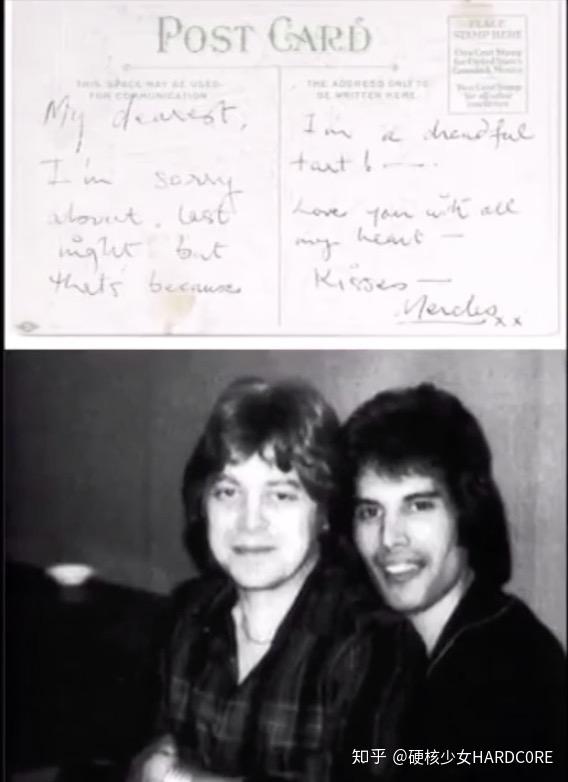 POST CARD
THIS SPACE MAY BE USED
FOR COMMUNICATION
My dearest,
I'm sorry
about last
night but
that's because
THE ADDRESS ONLY TO
BE WRITTEN HERE
PLACE
STAMP HERE
One Cent Stamp
for United States
I'm a dreadful
tart! —
Love you with all
my heart —
Kisses —
x x
知乎 @硬核少女HARDCORE